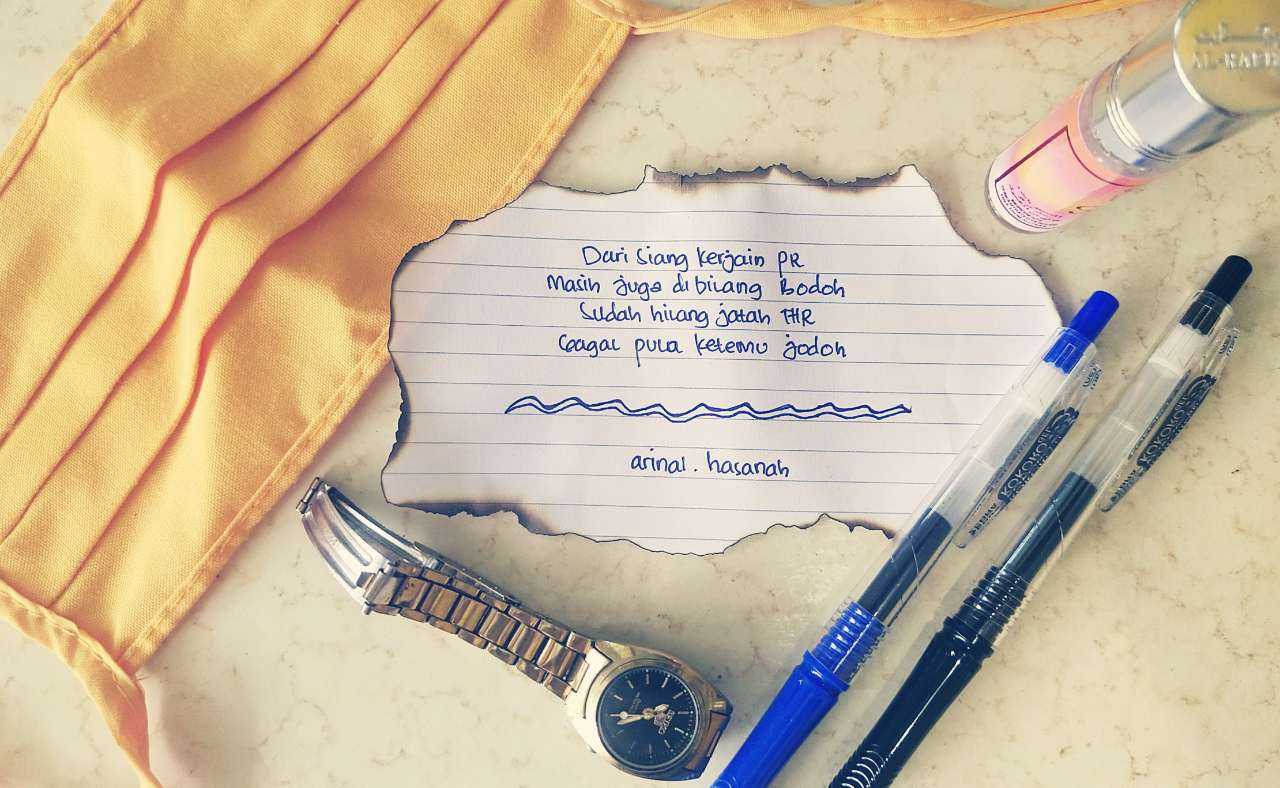 Dari siang kerjain PR
Masih juga dibilang Bodoh
Sudah hilang jatah THR
Gagal pula ketemu jodoh
arinal. hasanah
KOKORO
KOKORO
SEIKO